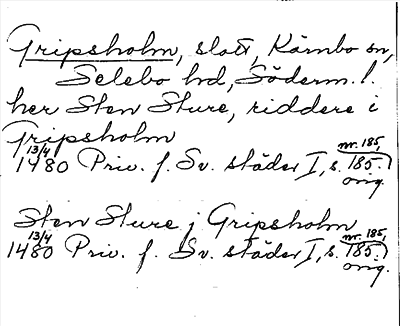 Gripsholm, slott, Kärnbo sn,
Selebo hd, Söderm. l.
her Sten Sture, riddere i
Gripsholm
13/4 1480 Priv. f. Sv. städer I, s. 185. nr. 185, orig.
Sten Sture j Gripsholm
13/4 1480 Priv. f. Sv. städer I, s. 185. nr. 185, orig.